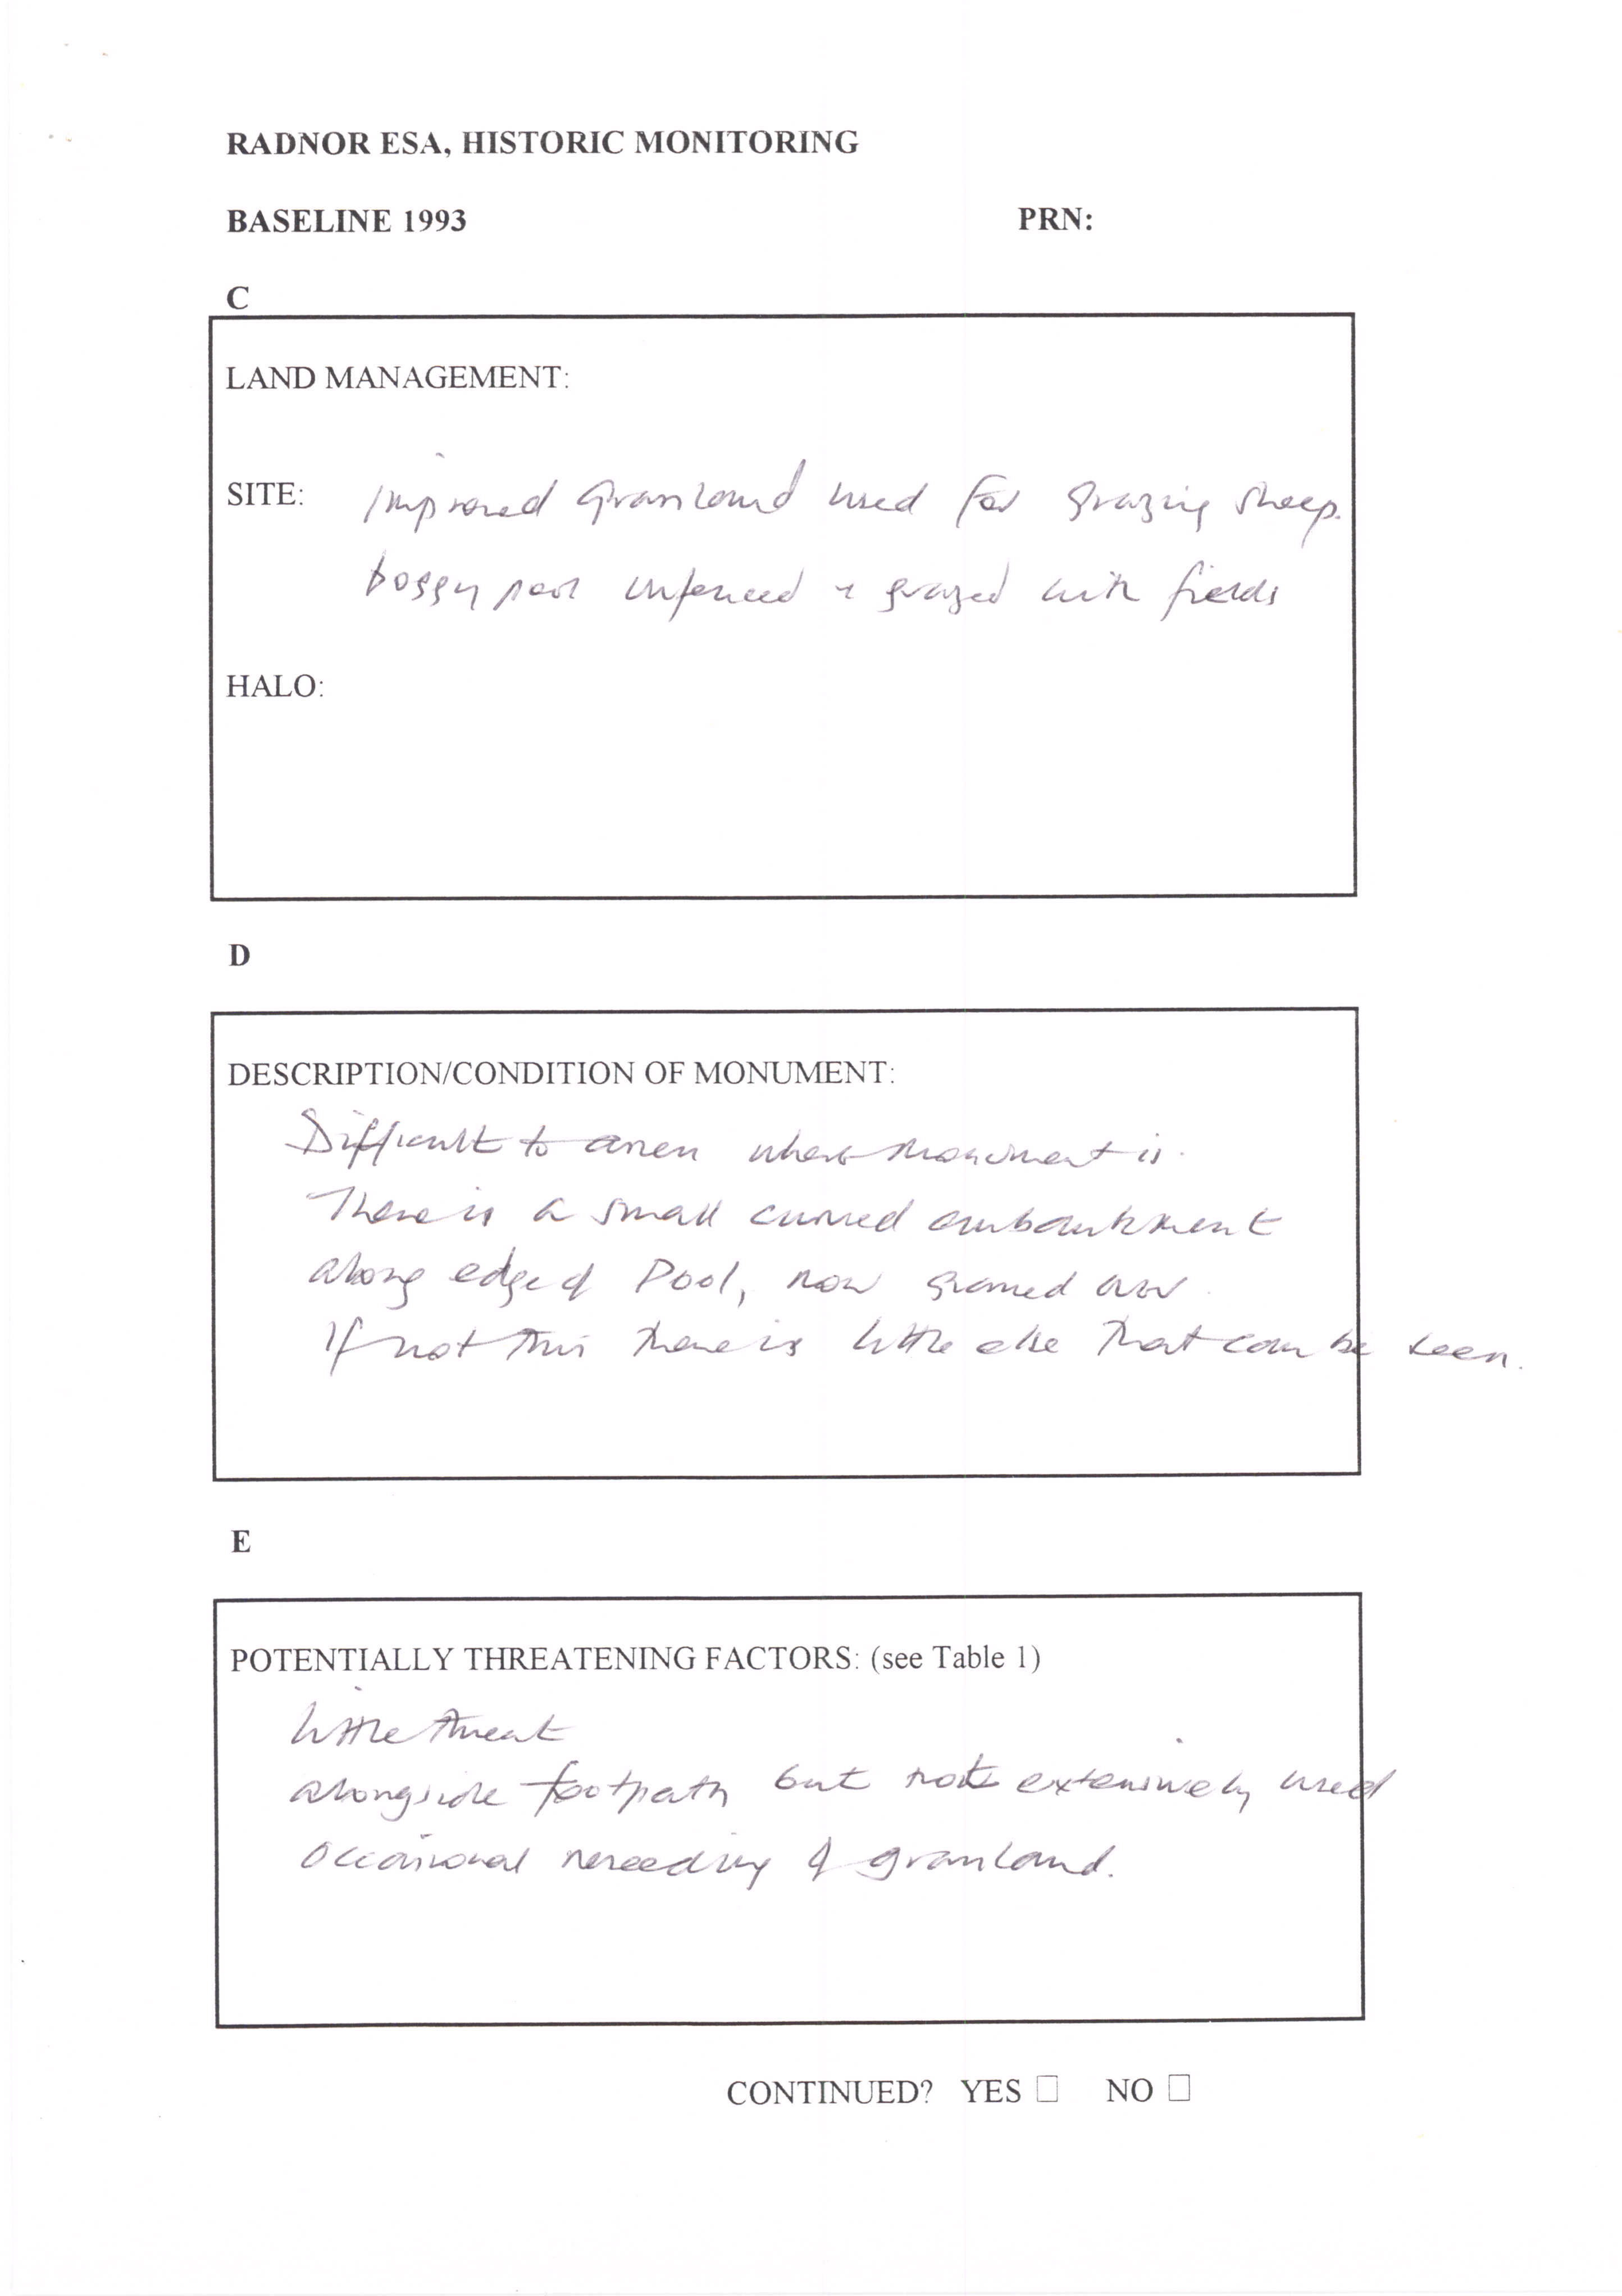 RADNOR ESA, HISTORIC MONITORING
BASELINE 1993 PRN:
C
LAND MANAGEMENT:
SITE: Improved grassland used for grazing sheep.
boggy part unfenced + grazed with fields
HALO:
D
DESCRIPTION/CONDITION OF MONUMENT:
Difficult to assess where monument is.
There is a small curved embankment
along edge of Pool, now grassed over.
If not this there is little else that can be seen.
E
POTENTIALLY THREATENING FACTORS: (see Table 1)
little threat
alongside footpath but not extensively used
Occasional reseeding of grassland.
CONTINUED? YES ☐ NO ☐